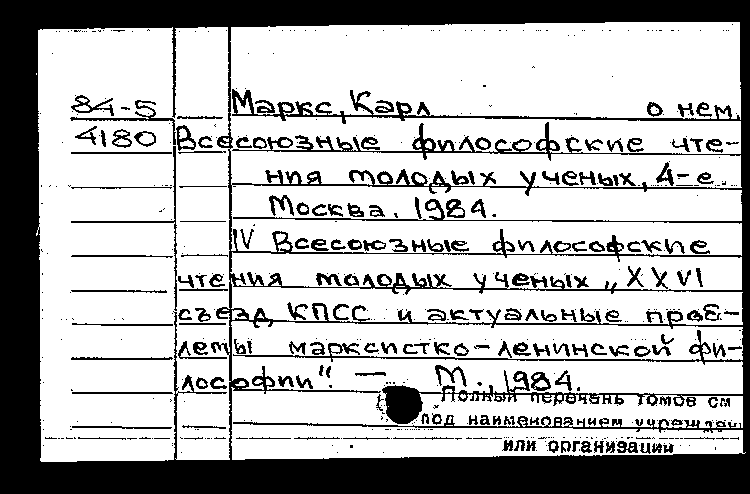 84-5 Маркс, Карл о нем.
4180 Всесоюзные философские чте-
ния молодых ученых, 4-е.
Москва. 1984.
IV Всесоюзные философские
чтения молодых ученых „XXVI
съезд КПСС и актуальные проб-
лемы марксистко-ленинской фи-
лософии". — М., 1984.
Полный перечень томов см
под наименованием учрежден
или организации